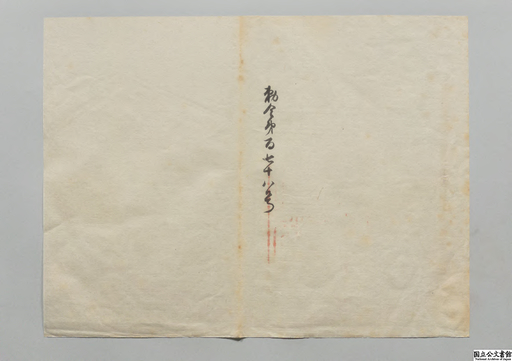 勅令第百七十八号
国立公文書館
National Archives of Japan